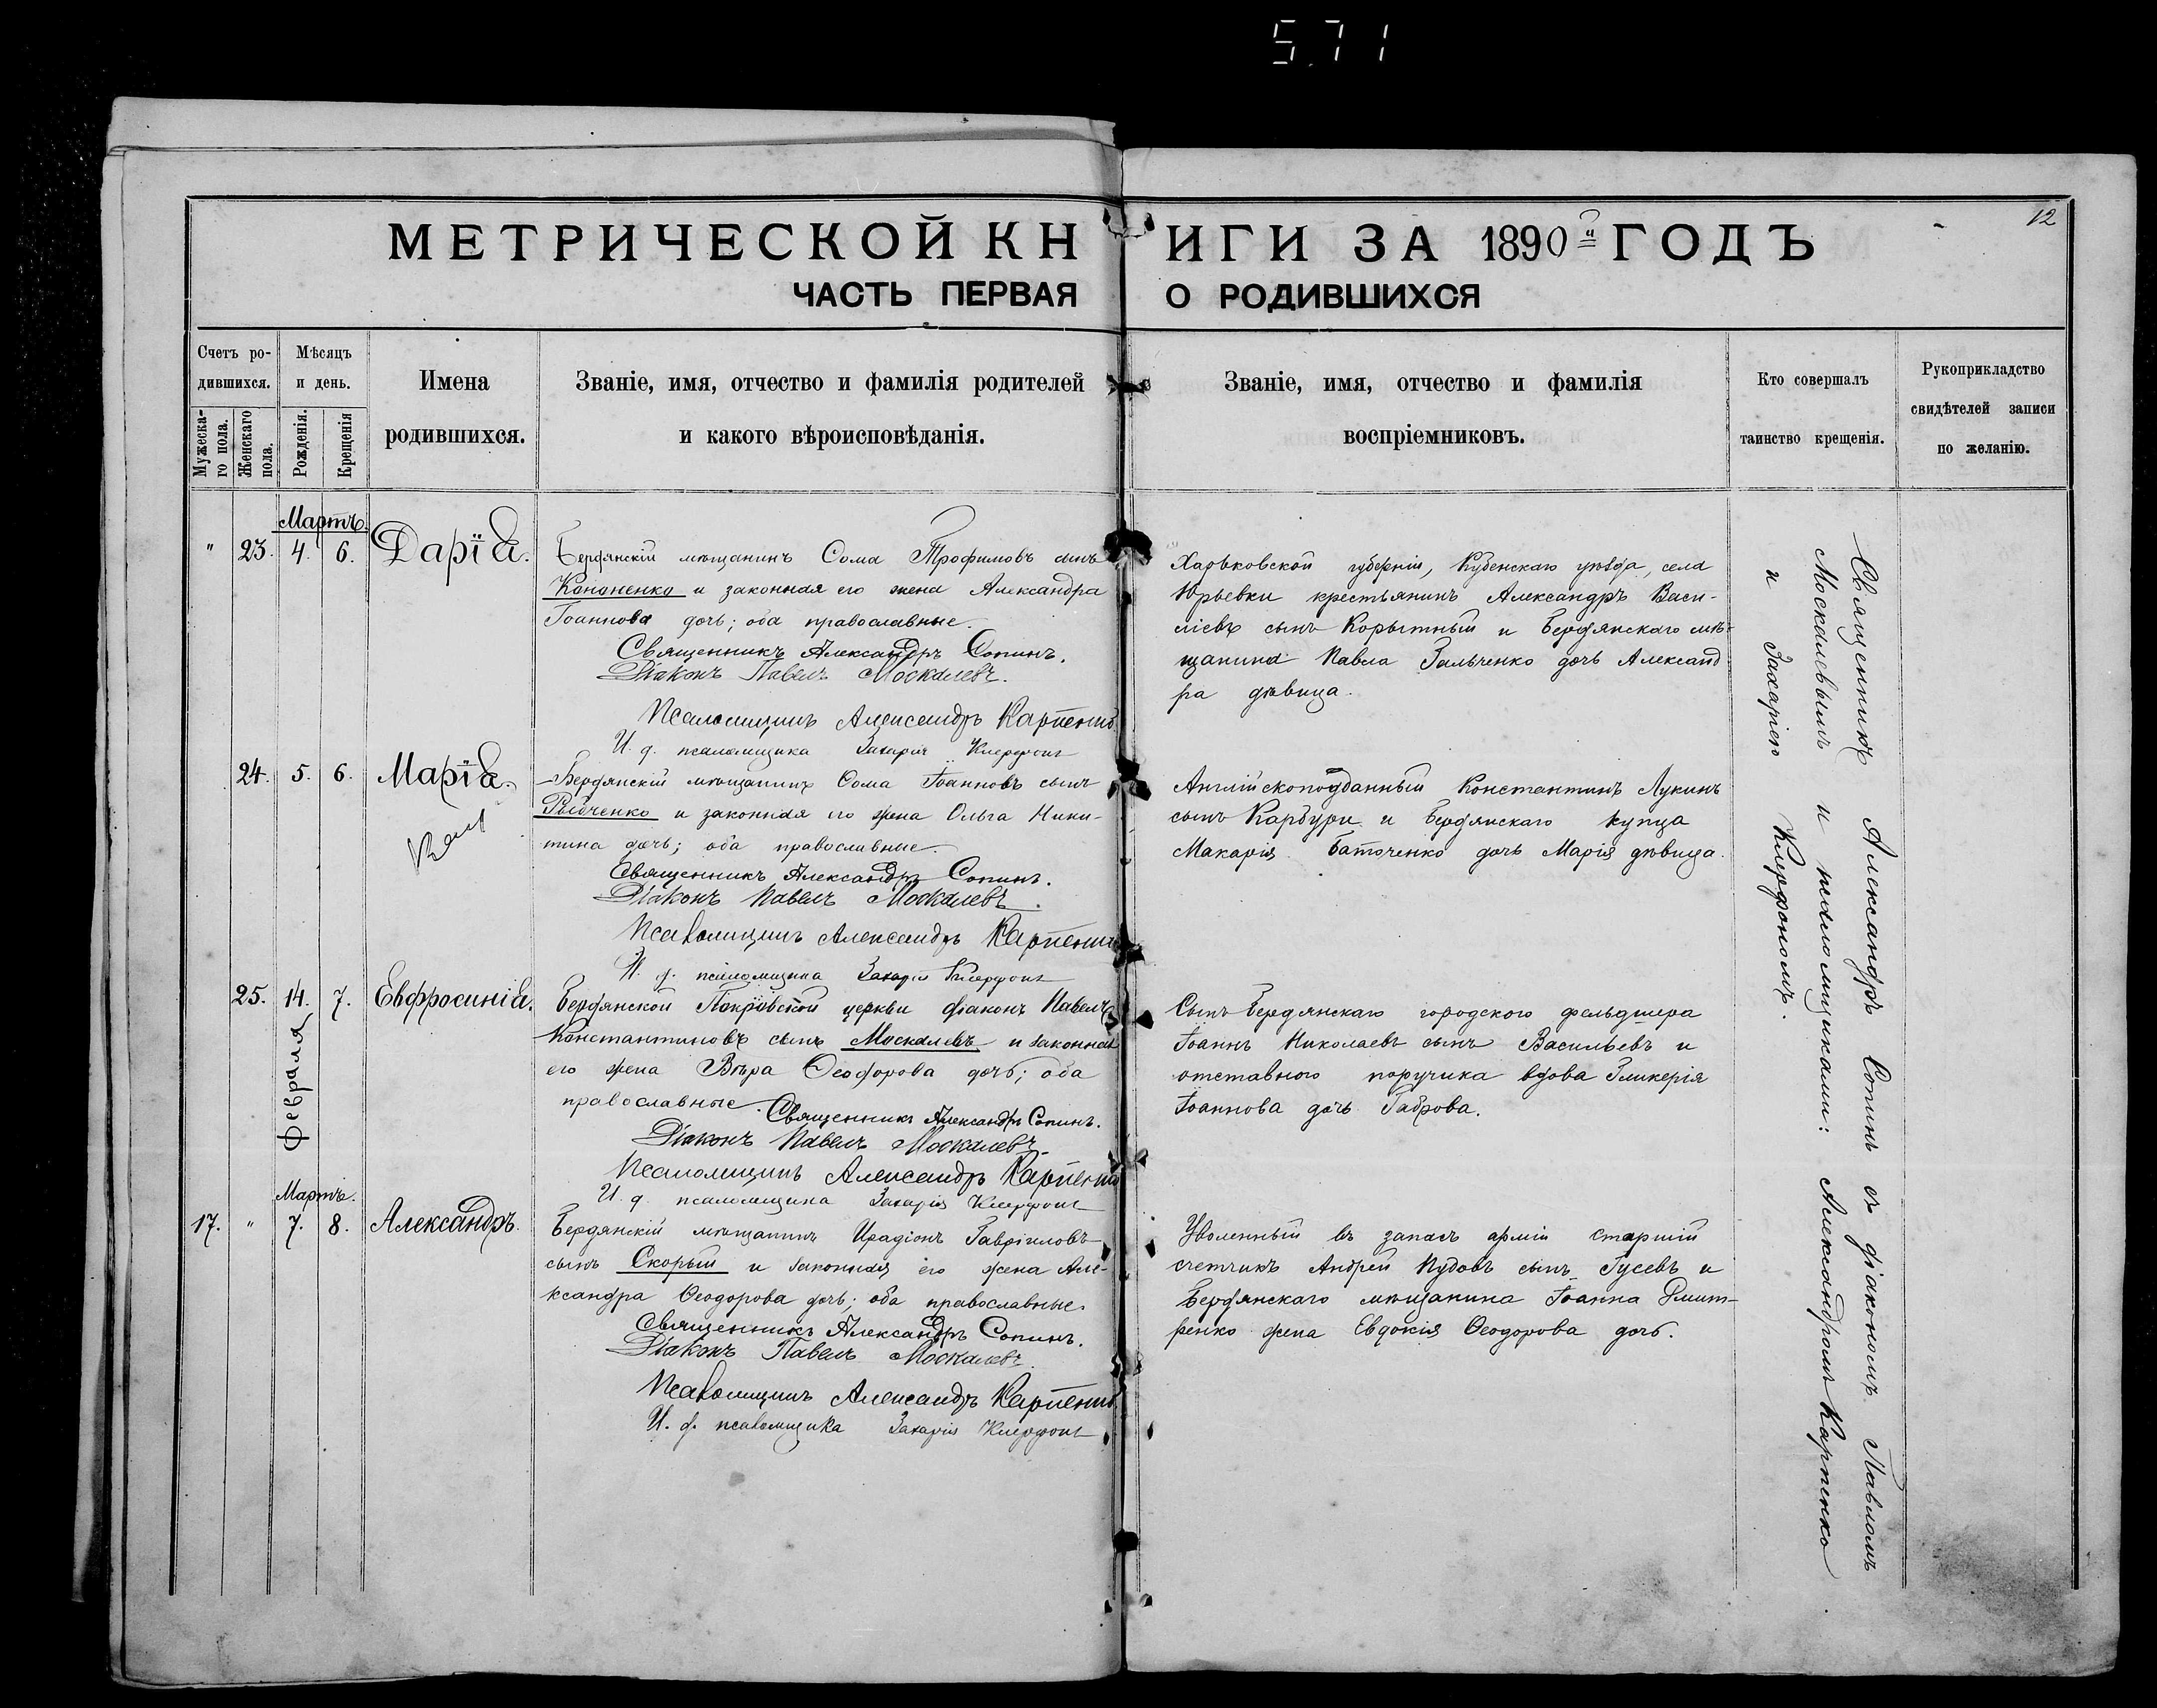 5.71
12
МЕТРИЧЕСКОЙ КНИГИ ЗА 1890й ГОДЪ
ЧАСТЬ ПЕРВАЯ О РОДИВШИХСЯ
Счетъ ро-
дившихся.
Мужеска-
го пола.
Женскаго
пола.
Мѣсяцъ
и день.
Рожденія.
Крещенія
Имена
родившихся.
Званіе, имя, отчество и фамилія родителей
и какого вѣроисповѣданія.
Званіе, имя, отчество и фамилія
воспріемниковъ.
Кто совершалъ
таинство крещенія.
Рукоприкладство
свидѣтелей записи
по желанію.
Мартъ.
" 23. 4. 6. Дарія.
Бердянскій мѣщанинъ Сома Трофимовъ сынъ
Кононенко и законная его жена Александра
Іоаннова дочь; оба православные.
Священникъ Александръ Сопинъ.
Діаконъ Павелъ Москалевъ.
Псаломщикъ Александръ Карпенко
И. д. псаломщика Захарія Клерфонъ
Харьковской губерніи, уѣзда, села
Юрьевки крестьянинъ Александръ Васи-
ліевъ сынъ Корытный и Бердянскаго мѣ-
щанина Павла Гальченко дочь Александ-
ра дѣвица.
24. 5. 6. Марія.
Бердянскій мѣщанинъ Сома Іоанновъ сынъ
Рябченко и законная его жена Ольга Ники-
тина дочь; оба православные.
Священникъ Александръ Сопинъ.
Діаконъ Павелъ Москалевъ.
Псаломщикъ Александръ Карпенко
И. д. псаломщика Захарія Клерфонъ
Англійскоподданный Константинъ Лукинъ
сынъ Карбури и Бердянскаго купца
Макарія Баточенко дочь Марія дѣвица.
25. 14. 7. Евфросинія.
Февраля
Бердянской Покровской церкви діаконъ Павелъ
Константиновъ сынъ Москалевъ и законная
его жена Вѣра Ѳеодорова дочь; оба
православные. Священникъ Александръ Сопинъ.
Діаконъ Павелъ Москалевъ
Псаломщикъ Александръ Карпенко
И. д. псаломщика Захарія Клерфонъ
Сынъ Бердянскаго городского фельдшера
Іоаннъ Николаевъ сынъ Васильевъ и
отставного поручика вдова Гликерія
Іоаннова дочь Габрова.
Мартъ.
17. " 7. 8. Александръ.
Бердянскій мѣщанинъ Иродіонъ Гавріиловъ
сынъ Скорый и законная его жена Але-
ксандра Ѳеодорова дочь; оба православные.
Священникъ Александръ Сопинъ.
Діаконъ Павелъ Москалевъ.
Псаломщикъ Александръ Карпенко
И. д. псаломщика Захарія Клерфонъ
Уволенный въ запасъ арміи старшій
счетчикъ Андрей Пудовъ сынъ Гусевъ и
Бердянскаго мѣщанина Іоанна Дмит-
ренко жена Евдокія Ѳеодорова дочь.
Священникъ Александръ Сопинъ съ діакономъ Павломъ
Москалевымъ и псаломщиками: Александромъ Карпенко
и Захаріею Клерфономъ.